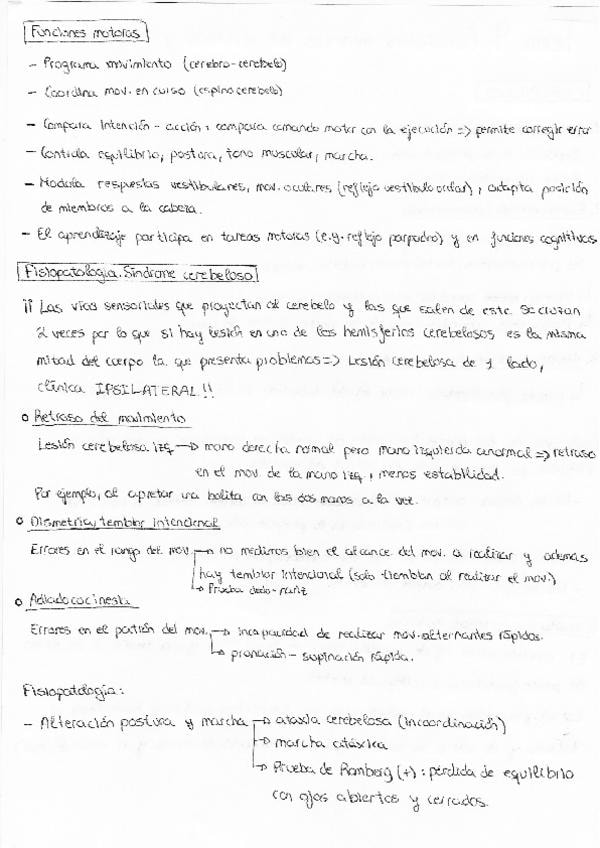 Funciones motoras
- Programa movimiento (cerebro-cerebelo)
- Coordina mov. en curso (espinocerebelo)
- Compara intención - acción: compara comando motor con la ejecución => permite corregir error
- Controla equilibrio, postura, tono muscular, marcha.
- Modula respuestas vestibulares, mov. oculares (reflejo vestíbulo ocular), adapta posición
de miembros a la cabeza.
- El aprendizaje participa en tareas motoras (e.g. reflejo parpadeo) y en funciones cognitivas
Fisiopatología. Síndrome cerebeloso
¡¡ Las vías sensoriales que proyectan al cerebelo y las que salen de este se cruzan
2 veces por lo que si hay lesión en uno de los hemisferios cerebelosos es la misma
mitad del cuerpo la que presenta problemas => Lesión cerebelosa de 1 lado,
clínica IPSILATERAL!!
o Retraso del movimiento
Lesión cerebelosa izq → mano derecha normal pero mano izquierda anormal => retraso
en el mov. de la mano izq, menos estabilidad.
Por ejemplo, al apretar una bolita con las dos manos a la vez.
o Dismetría, temblor intencional
Errores en el rango del mov. → no medimos bien el alcance del mov. a realizar y además
hay temblor intencional (solo tiemblan al realizar el mov.)
→ Prueba dedo-nariz
o Adiadococinesia
Errores en el patrón del mov. → incapacidad de realizar mov. alternantes rápidos.
→ pronación - supinación rápida.
Fisiopatología:
- Alteración postura y marcha → ataxia cerebelosa (incoordinación)
→ marcha atáxica
→ Prueba de Romberg (+): pérdida de equilibrio
con ojos abiertos y cerrados.